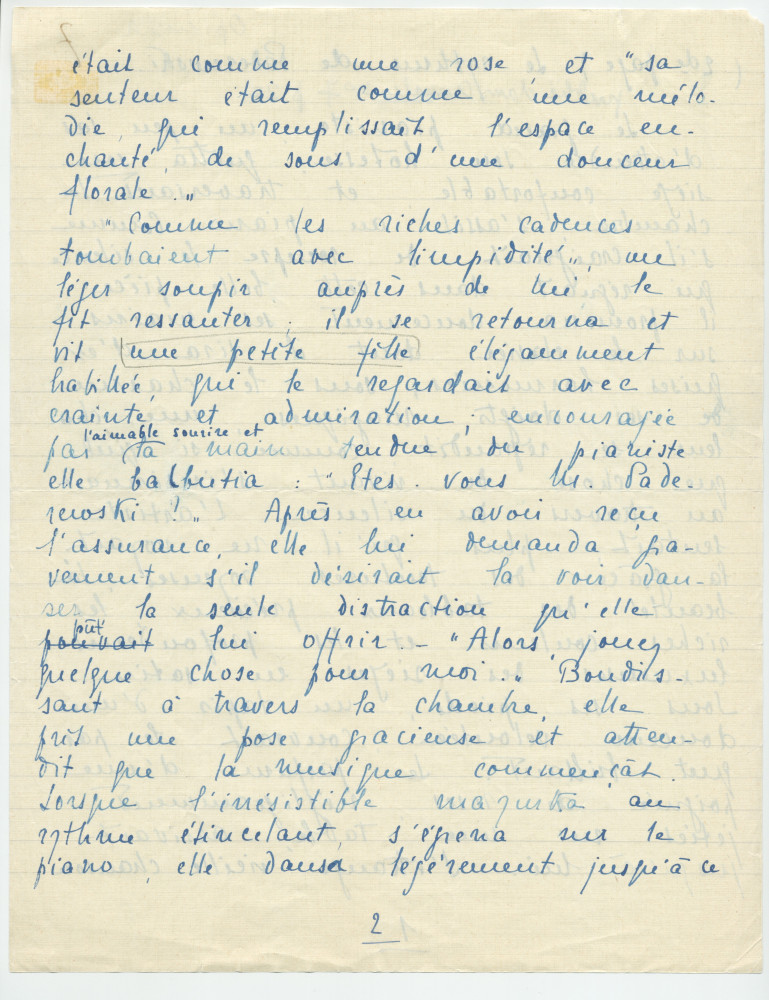 était comme une rose et "sa
senteur était comme une mélo-
die, qui remplissait l'espace en-
chanté, de sons d'une douceur
florale..„
"Comme les riches cadences
tombaient avec limpidité„, un
léger soupir auprès de lui le
fit ressauter; il se retourna et
vit une petite fille élégamment
habillée, qui le regardait avec
crainte et admiration; encouragée
l'aimable sourire et
par la main tendue du pianiste
elle balbutia : "Etes-vous Ms. Pade-
rewski?„ Après en avoir reçu
l'assurance, elle lui demanda gra-
vement s'il désirait la voir dan-
ser la seule distraction qu'elle
pût
pouvait lui offrir.- "Alors, jouez
quelque chose pour moi.." Bondis-
sant à travers la chambre, elle
prit une pose gracieuse et atten-
dit que la musique commençât.
Lorsque l'irrésistible mazurka, au
rythme étincelant, s'égrena sur le
piano, elle dansa légérement jusqu'à ce
2